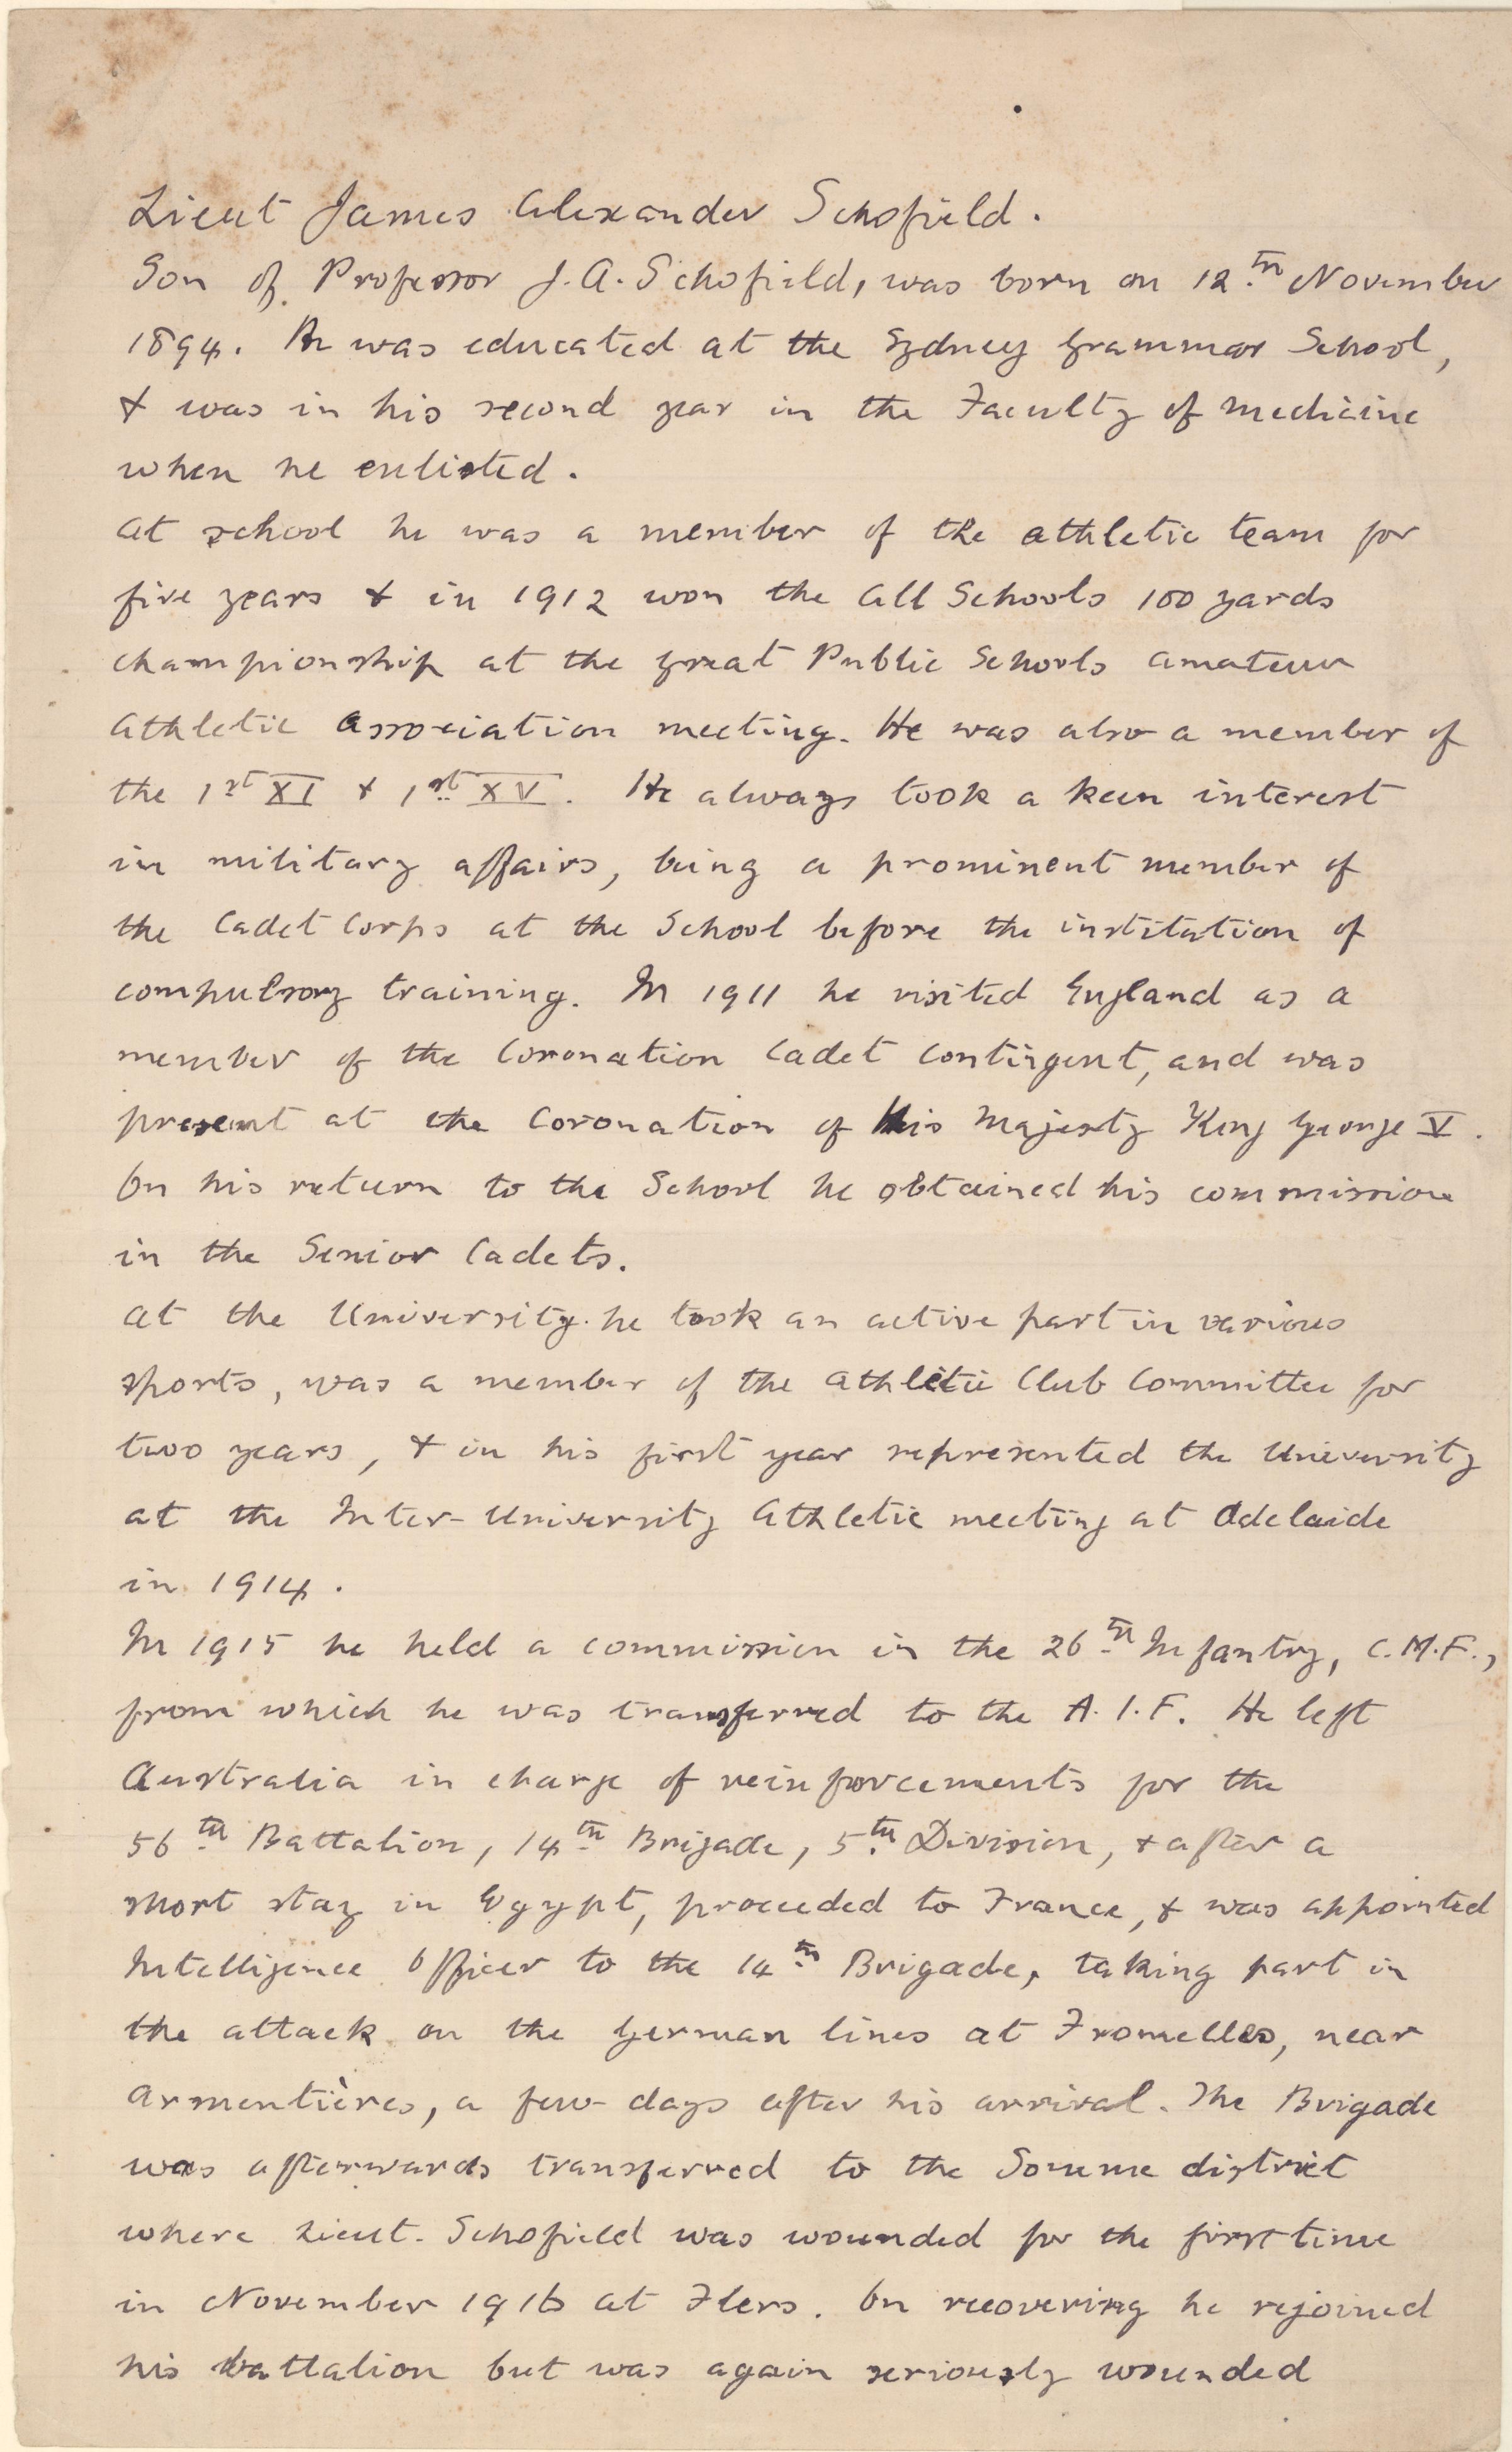 Lieut James Alexander Schofield.
Son of Professor J.A. Schofield, was born on 12th November
1894. He was educated at the Sydney Grammar School,
& was in his second year in the Faculty of Medicine
when he enlisted.
At school he was a member of the athletic team for
five years & in 1912 won the All Schools 100 yards
championship at the Great Public Schools Amateur
Athletic Association meeting. He was also a member of
the 1st XI & 1st XV. He always took a keen interest
in military affairs, being a prominent member of
the Cadet Corps at the School before the institution of
compulsory training. In 1911 he visited England as a
member of the Coronation Cadet Contingent, and was
present at the Coronation of His Majesty King George V.
On his return to the School he obtained his commission
in the Senior Cadets.
At the University he took an active part in various
sports, was a member of the Athletic Club Committee for
two years, & in his first year represented the University
at the Inter-University Athletic meeting at Adelaide
in 1914.
In 1915 he held a commission in the 26th Infantry, C.M.F.,
from which he was transferred to the A.I.F. He left
Australia in charge of reinforcements for the
56th Battalion, 14th Brigade, 5th Division, & after a
short stay in Egypt, proceeded to France, & was appointed
Intelligence Officer to the 14th Brigade, taking part in
the attack on the German lines at Fromelles, near
Armentières, a few days after his arrival. The Brigade
was afterwards transferred to the Somme district
where Lieut. Schofield was wounded for the first time
in November 1916 at Flers. On recovering he rejoined
his battalion but was again seriously wounded